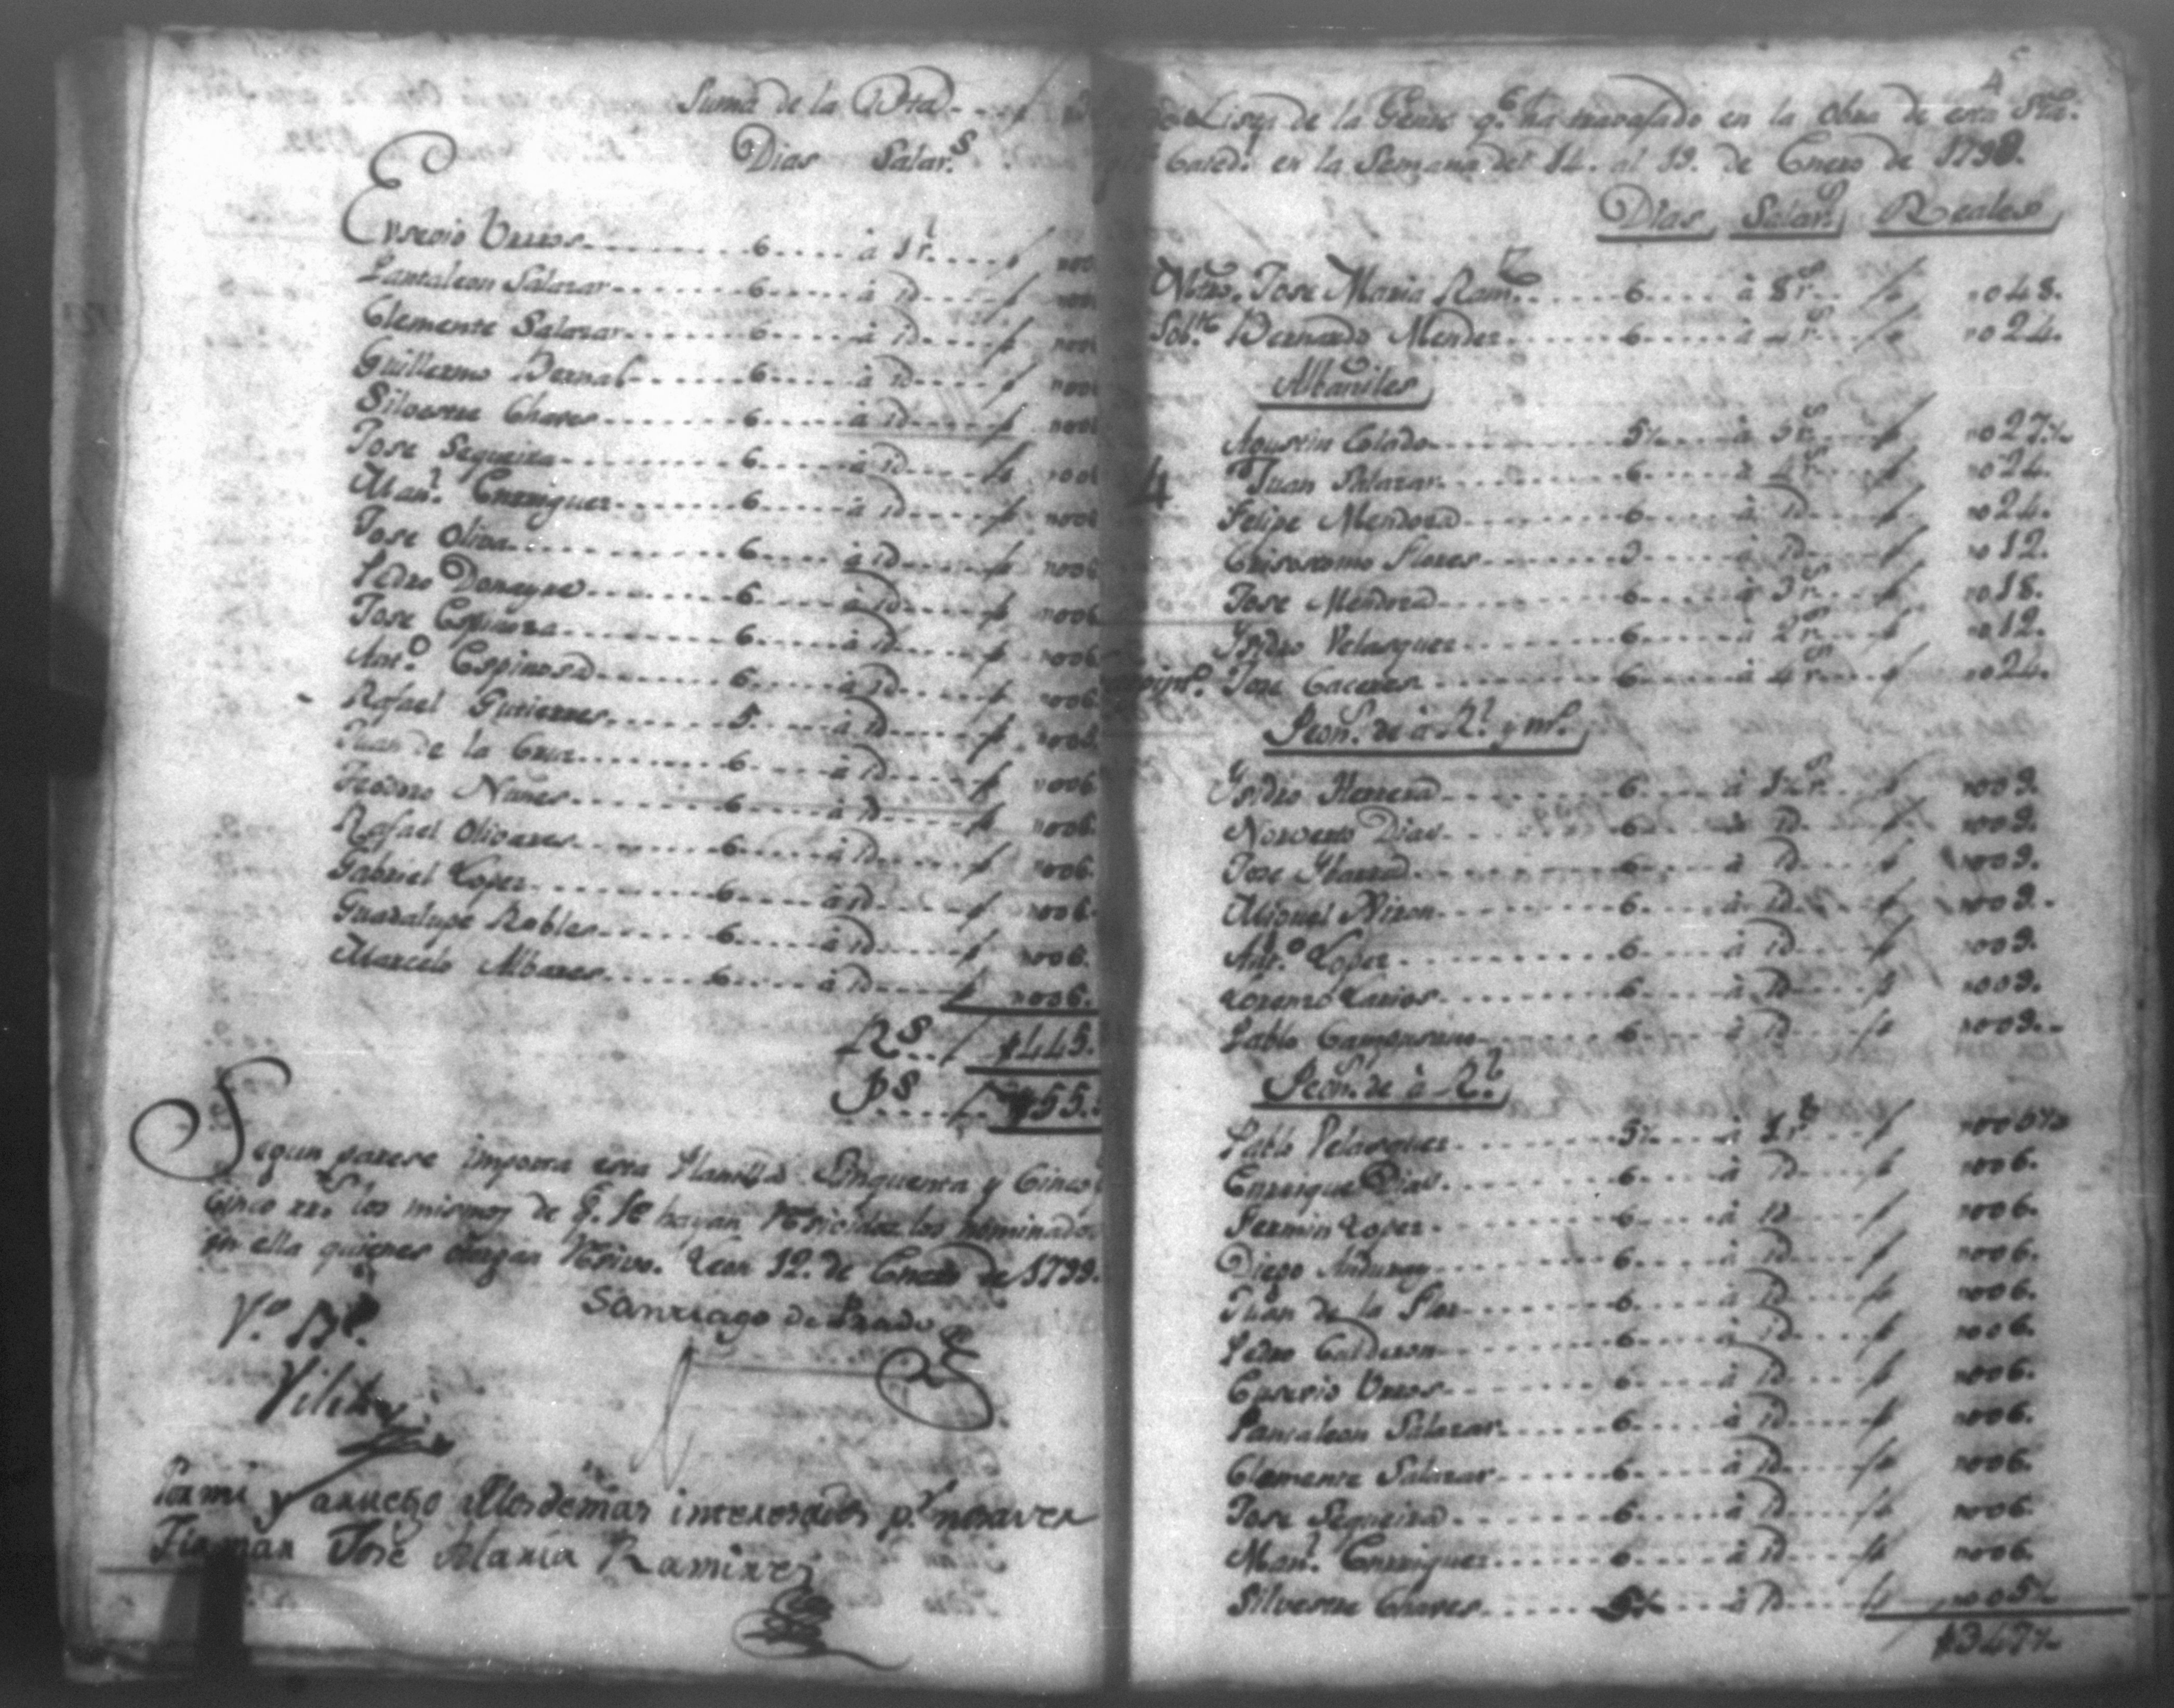 Suma de la Bta.
Dias Salar.s
Eusevio Urros 6 à 1 r.l
Pantaleon Salazar 6 à id
Clemente Salazar 6 à id
Guillermo Bernal 6 à id
Silvestre Chaves 6 à id
Jose Sequeira 6 à id
Man.l Enrriquez 6 à id
Jose Oliva 6 à id 006
Pedro Donayre 6 à id 006
Jose Espinoza 6 à id 006
Ant.o Espinosa 6 à id 006
Rafael Gutierres 5 à id 005
Juan de la Cruz 6 à id 006
Teodoro Nuñes 6 à id 006.
Rafael Olivares 6 à id 006.
Gabriel Lopez 6 à id 006.
Guadalupe Robles 6 à id 006.
Marcelo Albares 6 à id 006.
R.s 445.
P.s 55.
Segun parese importa esta Planilla Sinquenta y Cinco
Cinco rr.s los mismos de q. se hayan Resividos los nominados
en ella quienes otorgan Resivo. Leon 12. de Enero de 1799.
V.o B.o
Santiago de Prado
Vilches
Por mi y a ruego allos demas interesados p.r no saver
Firmar Jose Maria Ramires
Lista de la Gente q.e ha travajado en la Obra de esta Sta.
Cated.l en la Semana del 14. al 19. de Enero de 1799.
Dias Salar.s Reales
Mtro. Jose Maria Ram.z 6 à 8 r.s 048.
Sob.te Bernardo Mendez 6 à 4 r.s 024.
Albañiles
Agustin Colado 5½ à 5 r.s 027½
4 Juan Salazar 6 à 4 r.s 024.
Felipe Mendoza 6 à id 024.
Crisostomo Flores 3 à id 012.
Jose Mendoza 6 à 3 r.s 018.
Ysidro Velasquez 6 à 2 r.s 012.
Jose Caceres 6 à 4 r.s 024.
Peon.s de à R.l y m.o
Ysidro Herrera 6 à 1½ r.s 009.
Norverto Dias 6 à id 009.
Jose Ybarra 6 à id 009.
Miguel Nixon 6 à id 009.
Ant.o Lopez 6 à id 009.
Lorenzo Larios 6 à id 009.
Pablo Camonsano 6 à id 009.
Peon.s de à R.l
Pablo Velasquez 5½ à 1 r.l 005½
Enrrique Dias 6 à id 006.
Fermin Lopez 6 à id 006.
Diego Anduray 6 à id 006.
Juan de la Flor 6 à id 006.
Pedro Calderon 6 à id 006.
Eusevio Urros 6 à id 006.
Pantaleon Salazar 6 à id 006.
Clemente Salazar 6 à id 006.
Jose Sequeira 6 à id 006.
Man.l Enrriquez 6 à id 006.
Silvestre Chaves 5½ à id 005½
347½